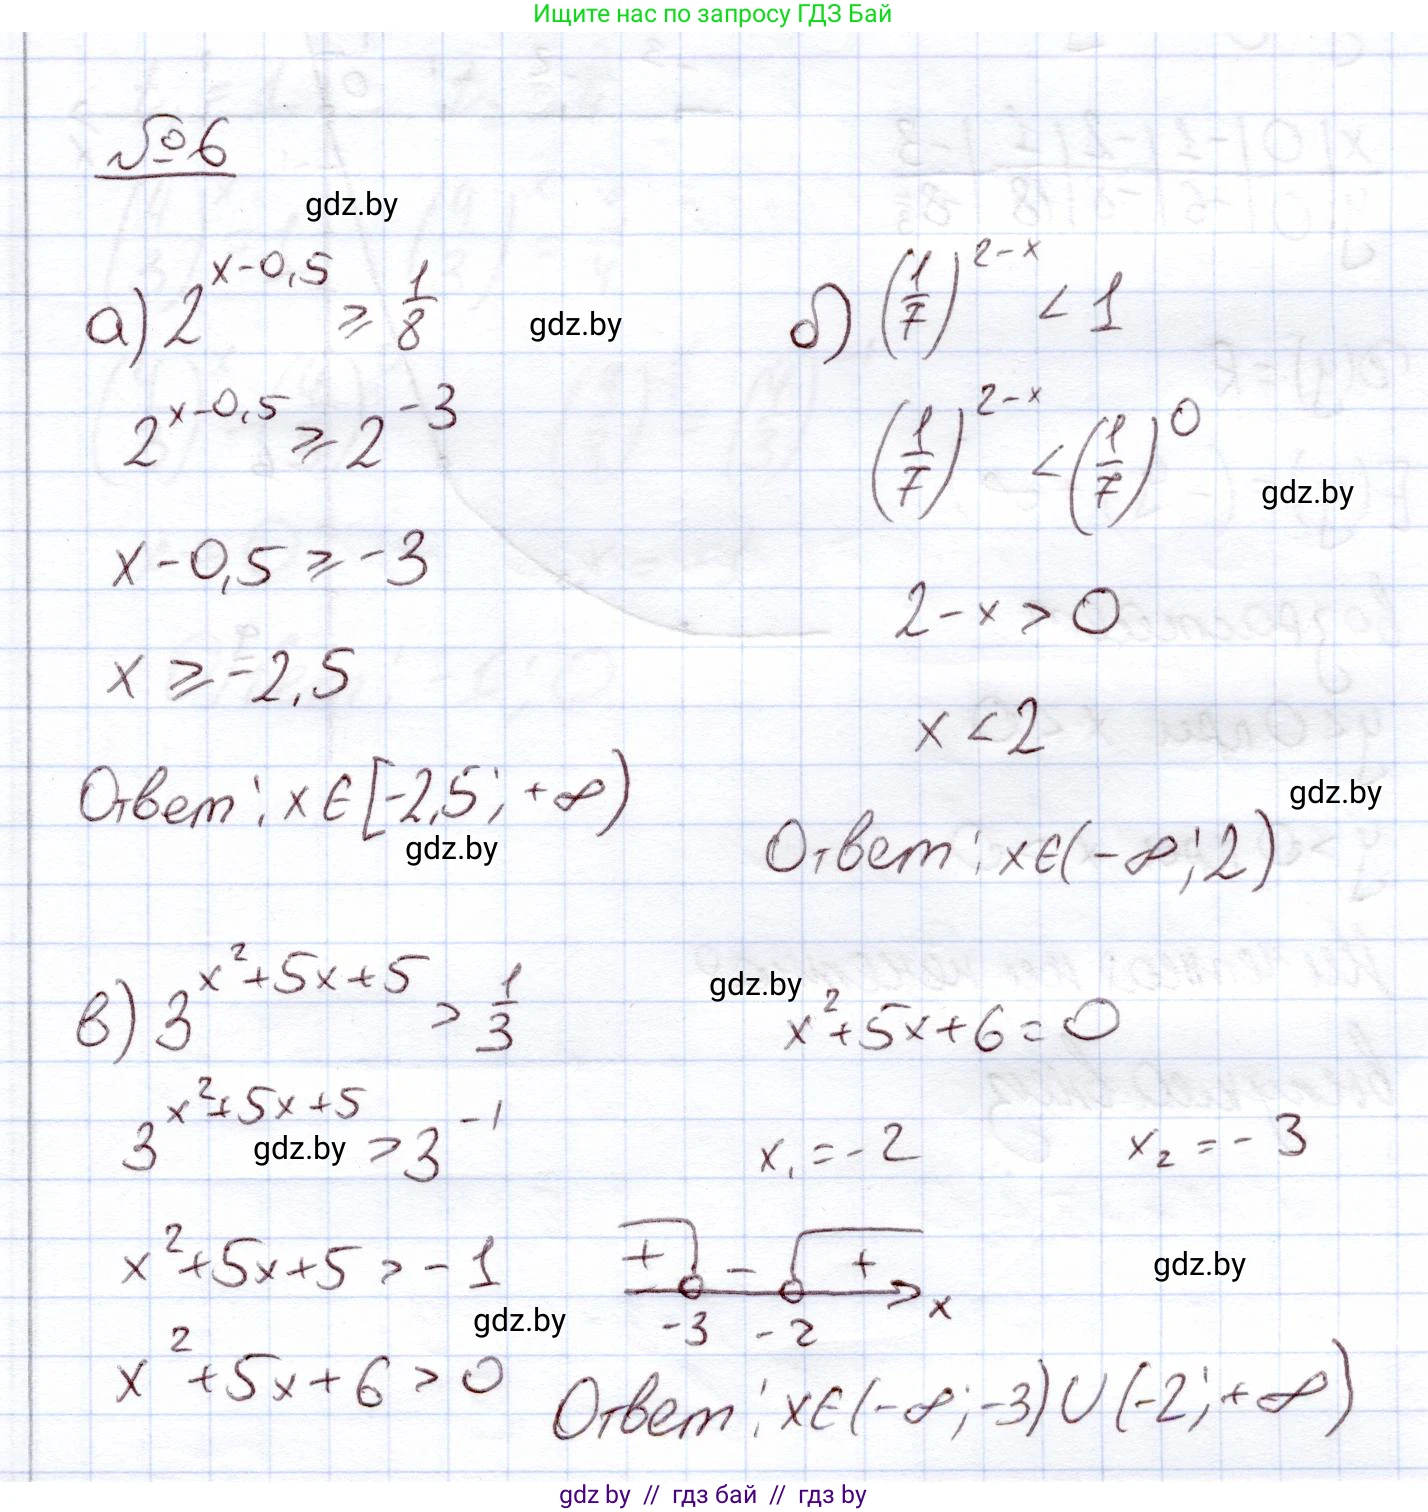 Ищите нас по запросу ГДЗ Бай
№6
gdz.by
а) 2^{x-0,5} ≥ 1/8
gdz.by
2^{x-0,5} ≥ 2^{-3}
x-0,5 ≥ -3
x ≥ -2,5
Ответ: x ∈ [-2,5; +∞)
gdz.by
б) (1/7)^{2-x} < 1
(1/7)^{2-x} < (1/7)^0
gdz.by
2-x > 0
x < 2
gdz.by
Ответ: x ∈ (-∞; 2)
в) 3^{x²+5x+5} > 1/3
3^{x²+5x+5} > 3^{-1}
gdz.by
x²+5x+5 > -1
gdz.by
x²+5x+6 > 0
gdz.by
x²+5x+6 = 0
x₁ = -2 x₂ = -3
+ - + x
gdz.by
-3 -2
Ответ: x ∈ (-∞; -3) ∪ (-2; +∞)
gdz by // гдз бай // гдз by